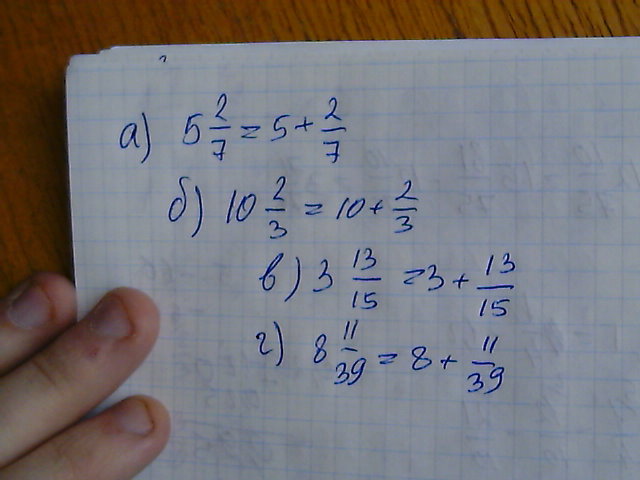 а) 5 2/7 = 5 + 2/7
б) 10 2/3 = 10 + 2/3
в) 3 13/15 = 3 + 13/15
г) 8 11/39 = 8 + 11/39